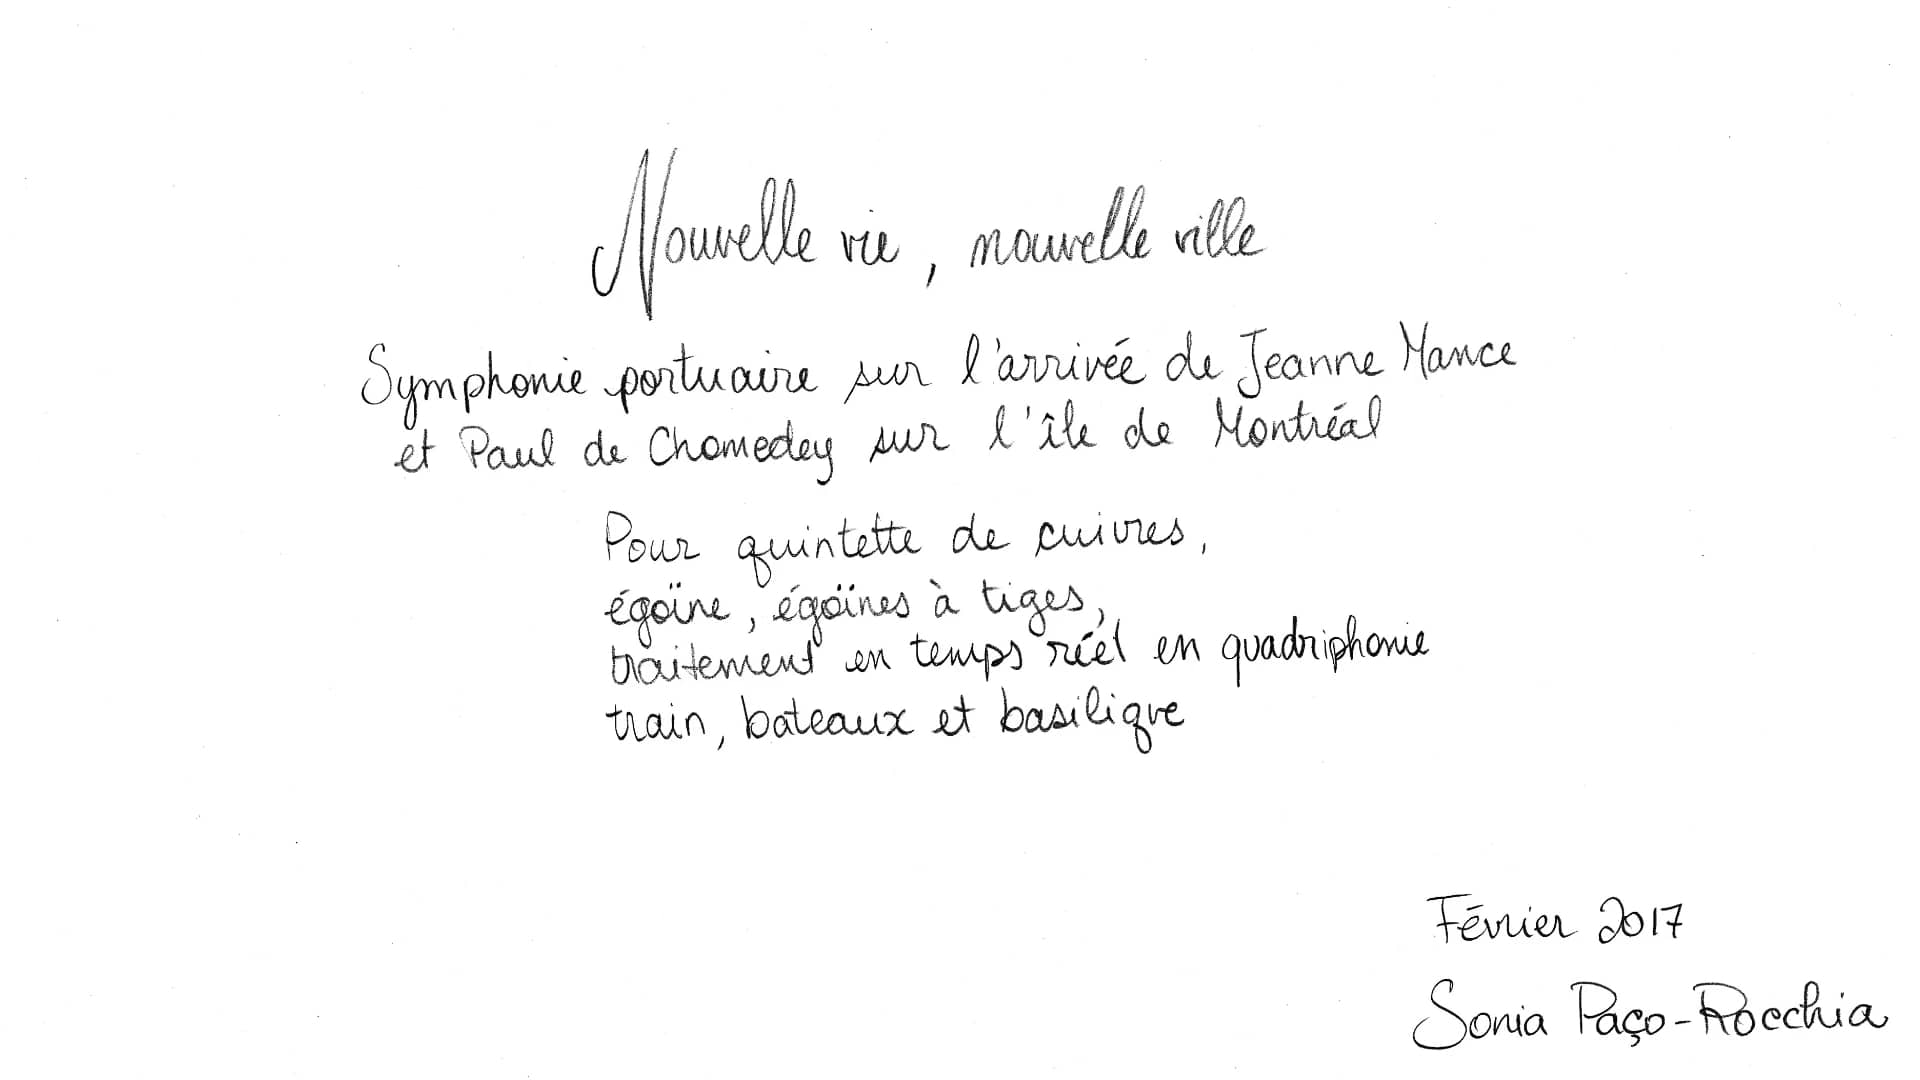 Nouvelle vie, nouvelle ville
Symphonie portuaire sur l'arrivée de Jeanne Mance
et Paul de Chomedey sur l'île de Montréal
Pour quintette de cuivres,
égoïne, égoïnes à tiges,
traitement en temps réel en quadriphonie
train, bateaux et basilique
Février 2017
Sonia Paço-Rocchia